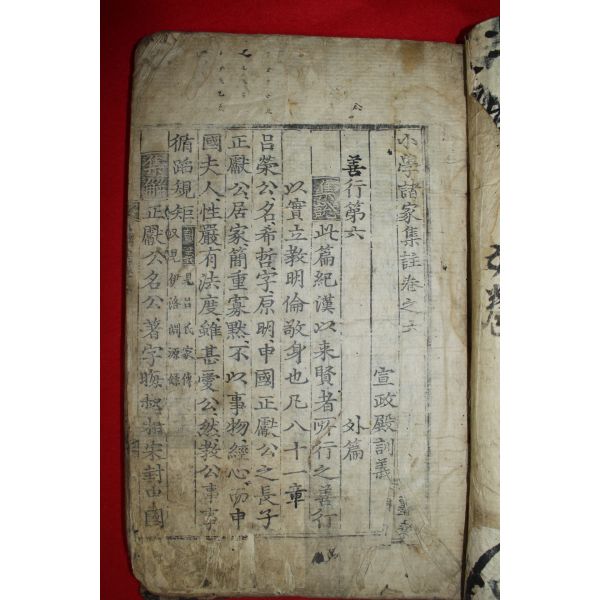 小學諸家集註卷之六
宣政殿訓義
善行第六
外篇
此篇紀漢以來賢者所行之善行
以實立敎明倫敬身也凡八十一章
呂榮公名希哲字原明申國正獻公之長子
正獻公居家簡重寡默不以事物經心而申
國夫人性嚴有法度雖甚愛公然敎公事事
循蹈規矩
見呂氏家傳
又見伊洛淵源錄
集解
正獻公名公著字晦叔相宋封申國